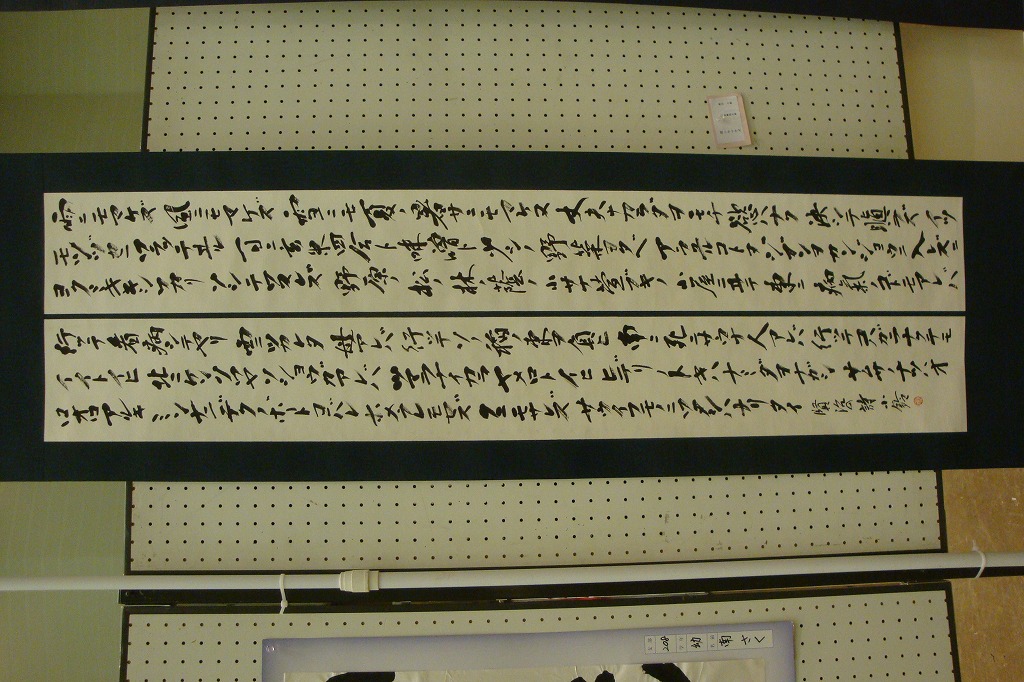 雨ニモマケズ風ニモマケズ雪ニモ夏ノ暑サニモマケヌ丈夫ナカラダヲモチ慾ハナク決シテ瞋ラズイツ
モシヅカニワラッテヰル一日ニ玄米四合ト味噌ト少シノ野菜ヲタベアラユルコトヲジブンヲカンジョウニ入レズニ
ヨクミキキシワカリソシテワスレズ野原ノ松ノ林ノ蔭ノ小サナ萱ブキノ小屋ニヰテ東ニ病氣ノコドモアレバ
行ッテ看病シテヤリ西ニツカレタ母アレバ行ッテソノ稲ノ束ヲ負ヒ南ニ死ニサウナ人アレバ行ッテコハガラナクテモ
イイトイヒ北ニケンクヮヤソショウガアレバツマラナイカラヤメロトイヒヒデリノトキハナミダヲナガシサムサノナツハオ
ロオロアルキミンナニデクノボートヨバレホメラレモセズクニモサレズサウイフモノニワタシハナリタイ
208